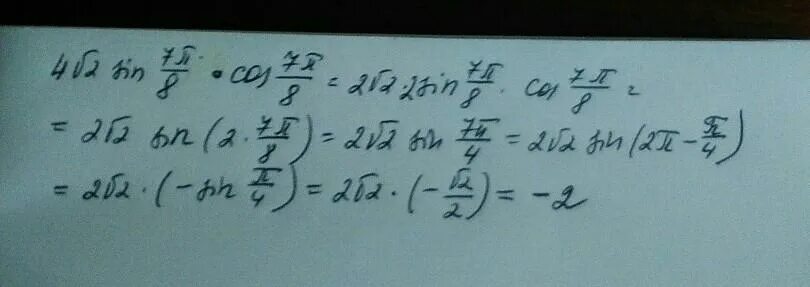 4√2 sin 7π/8 · cos 7π/8 = 2√2·2sin 7π/8 · cos 7π/8 =
= 2√2 sin(2·7π/8) = 2√2 sin 7π/4 = 2√2 sin(2π − π/4)
= 2√2·(−sin π/4) = 2√2·(−√2/2) = −2